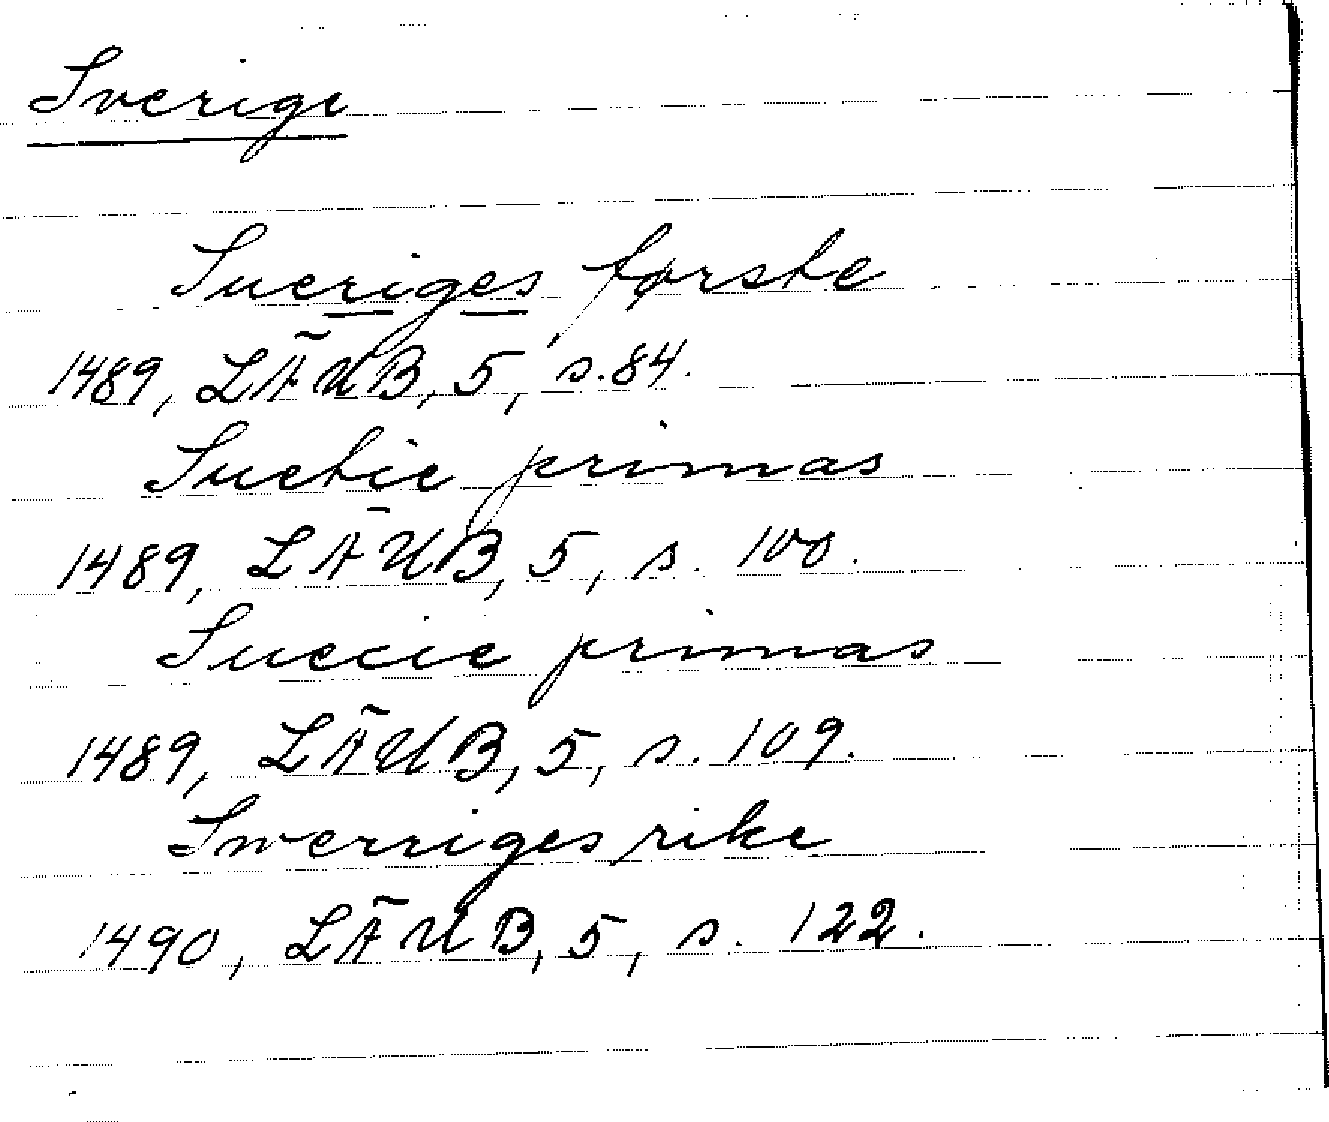 Sverige
Suerigesførste
1489, LÄUB, 5, s. 84.
Suetie primas
1489, LÄUB, 5, s. 100.
Suecie primas
1489, LÄUB, 5, s. 109.
Swerriges rike
1490, LÄUB, 5, s. 122.